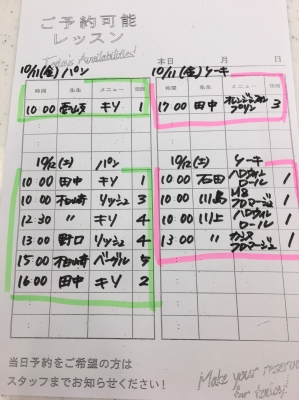 ご予約可能
レッスン
Today's Availabilities!
本日 月 日
10/11(金) パン
時間 先生 メニュー 空席
10:00 キソ 1
10/11(金) ケーキ
時間 先生 メニュー 空席
17:00 田中 オレンジシフォン プリン 3
10/12(土) パン
10:00 田中 キソ 1
10:00 柏崎 リッシュ 3
12:30 〃 キソ 4
13:00 野口 リッシュ 4
15:00 柏崎 ベーグル 5
16:00 田中 キソ 2
10/12(土) ケーキ
10:00 石田 ハロウィン ロール 1
10:00 川島 フロマージュ 1
10:00 川上 ハロウィン ロール 1
13:00 〃 カシス フロマージュ 1
当日予約をご希望の方は
スタッフまでお知らせください!
Make your
for today!